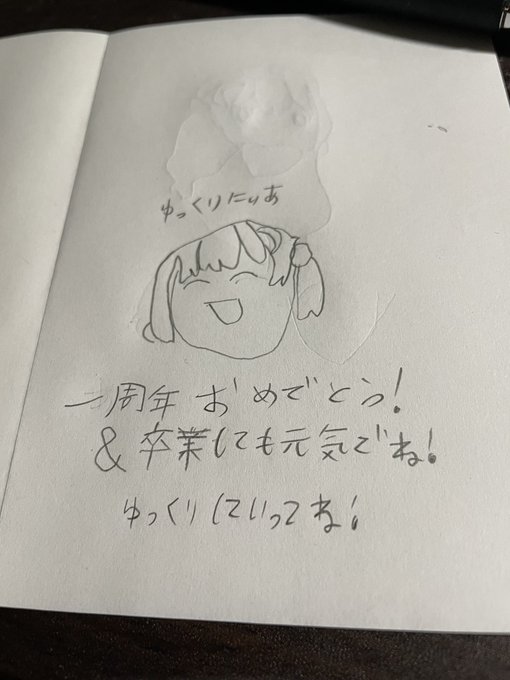 ゆっくりにりあ
一周年 おめでとう!
& 卒業しても元気でね!
ゆっくりしていってね!